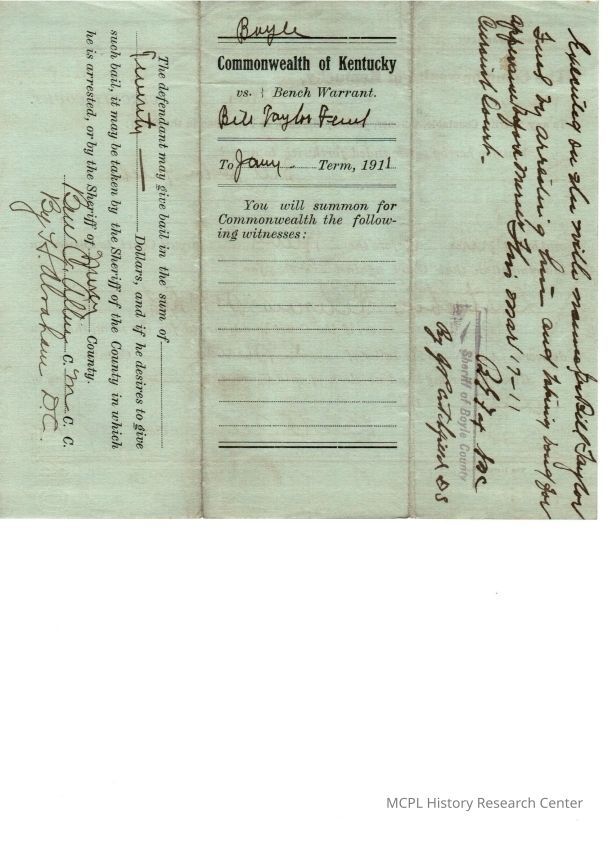 The defendant may give bail in the sum of
Twenty — Dollars, and if he desires to give
such bail, it may be taken by the Sheriff of the County in which
he is arrested, or by the Sheriff of Mercer County.
Ben C. Allin C. M C. C.
By H. Abraham D.C.
Boyle
Commonwealth of Kentucky
vs. } Bench Warrant.
Bill Taylor
To Jany Term, 1911
You will summon for
Commonwealth the follow-
ing witnesses:
Executed on the within named Bill Taylor
by arresting him and taking bond for
appearance before Mercer
Circuit Court. This Mar 17-11
Sheriff of Boyle County
By D S
MCPL History Research Center